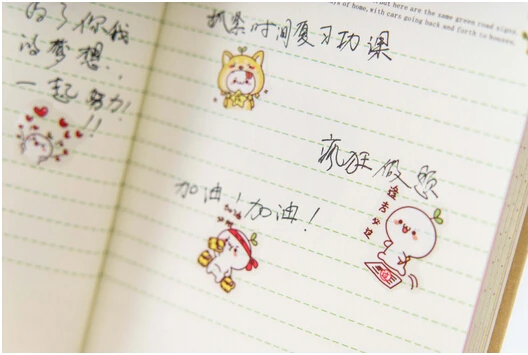 为了你我
的梦想.
一起努力!
!!
but here are the same green road signs
of home, with cars going back and forth to houses,
抓紧时间复习功课
疯狂做题
加油!加油!